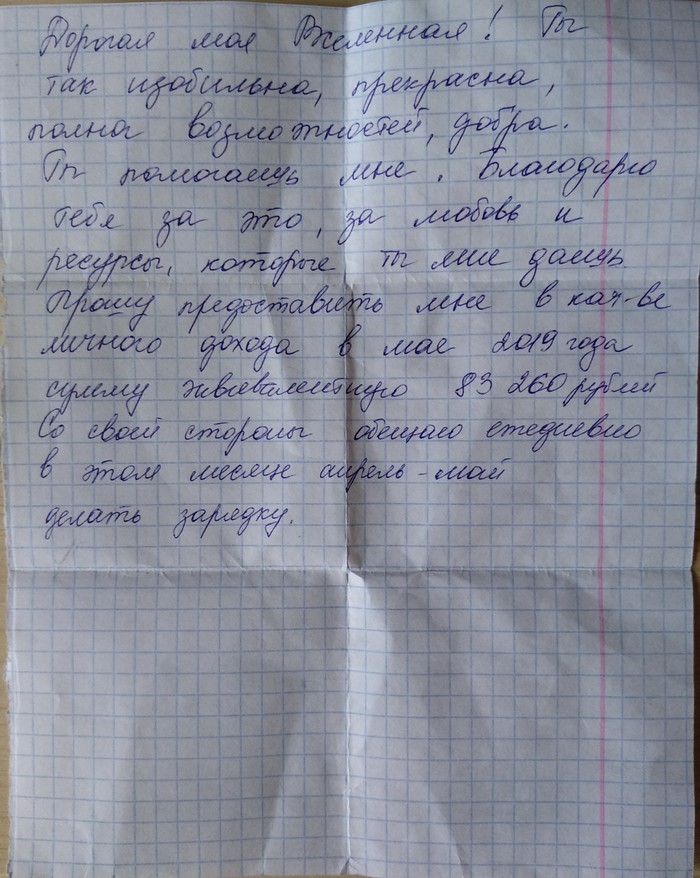 Дорогая моя Вселенная! Ты
так изобильна, прекрасна,
полна возможностей, добра.
Ты помогаешь мне. Благодарю
тебя за это, за любовь и
ресурсы, которые ты мне даешь.
Прошу предоставить мне в кач-ве
личного дохода в мае 2019 года
сумму эквивалентную 83 260 рублей
Со своей стороны обещаю ежедневно
в этом месяце апрель-май
делать зарядку.